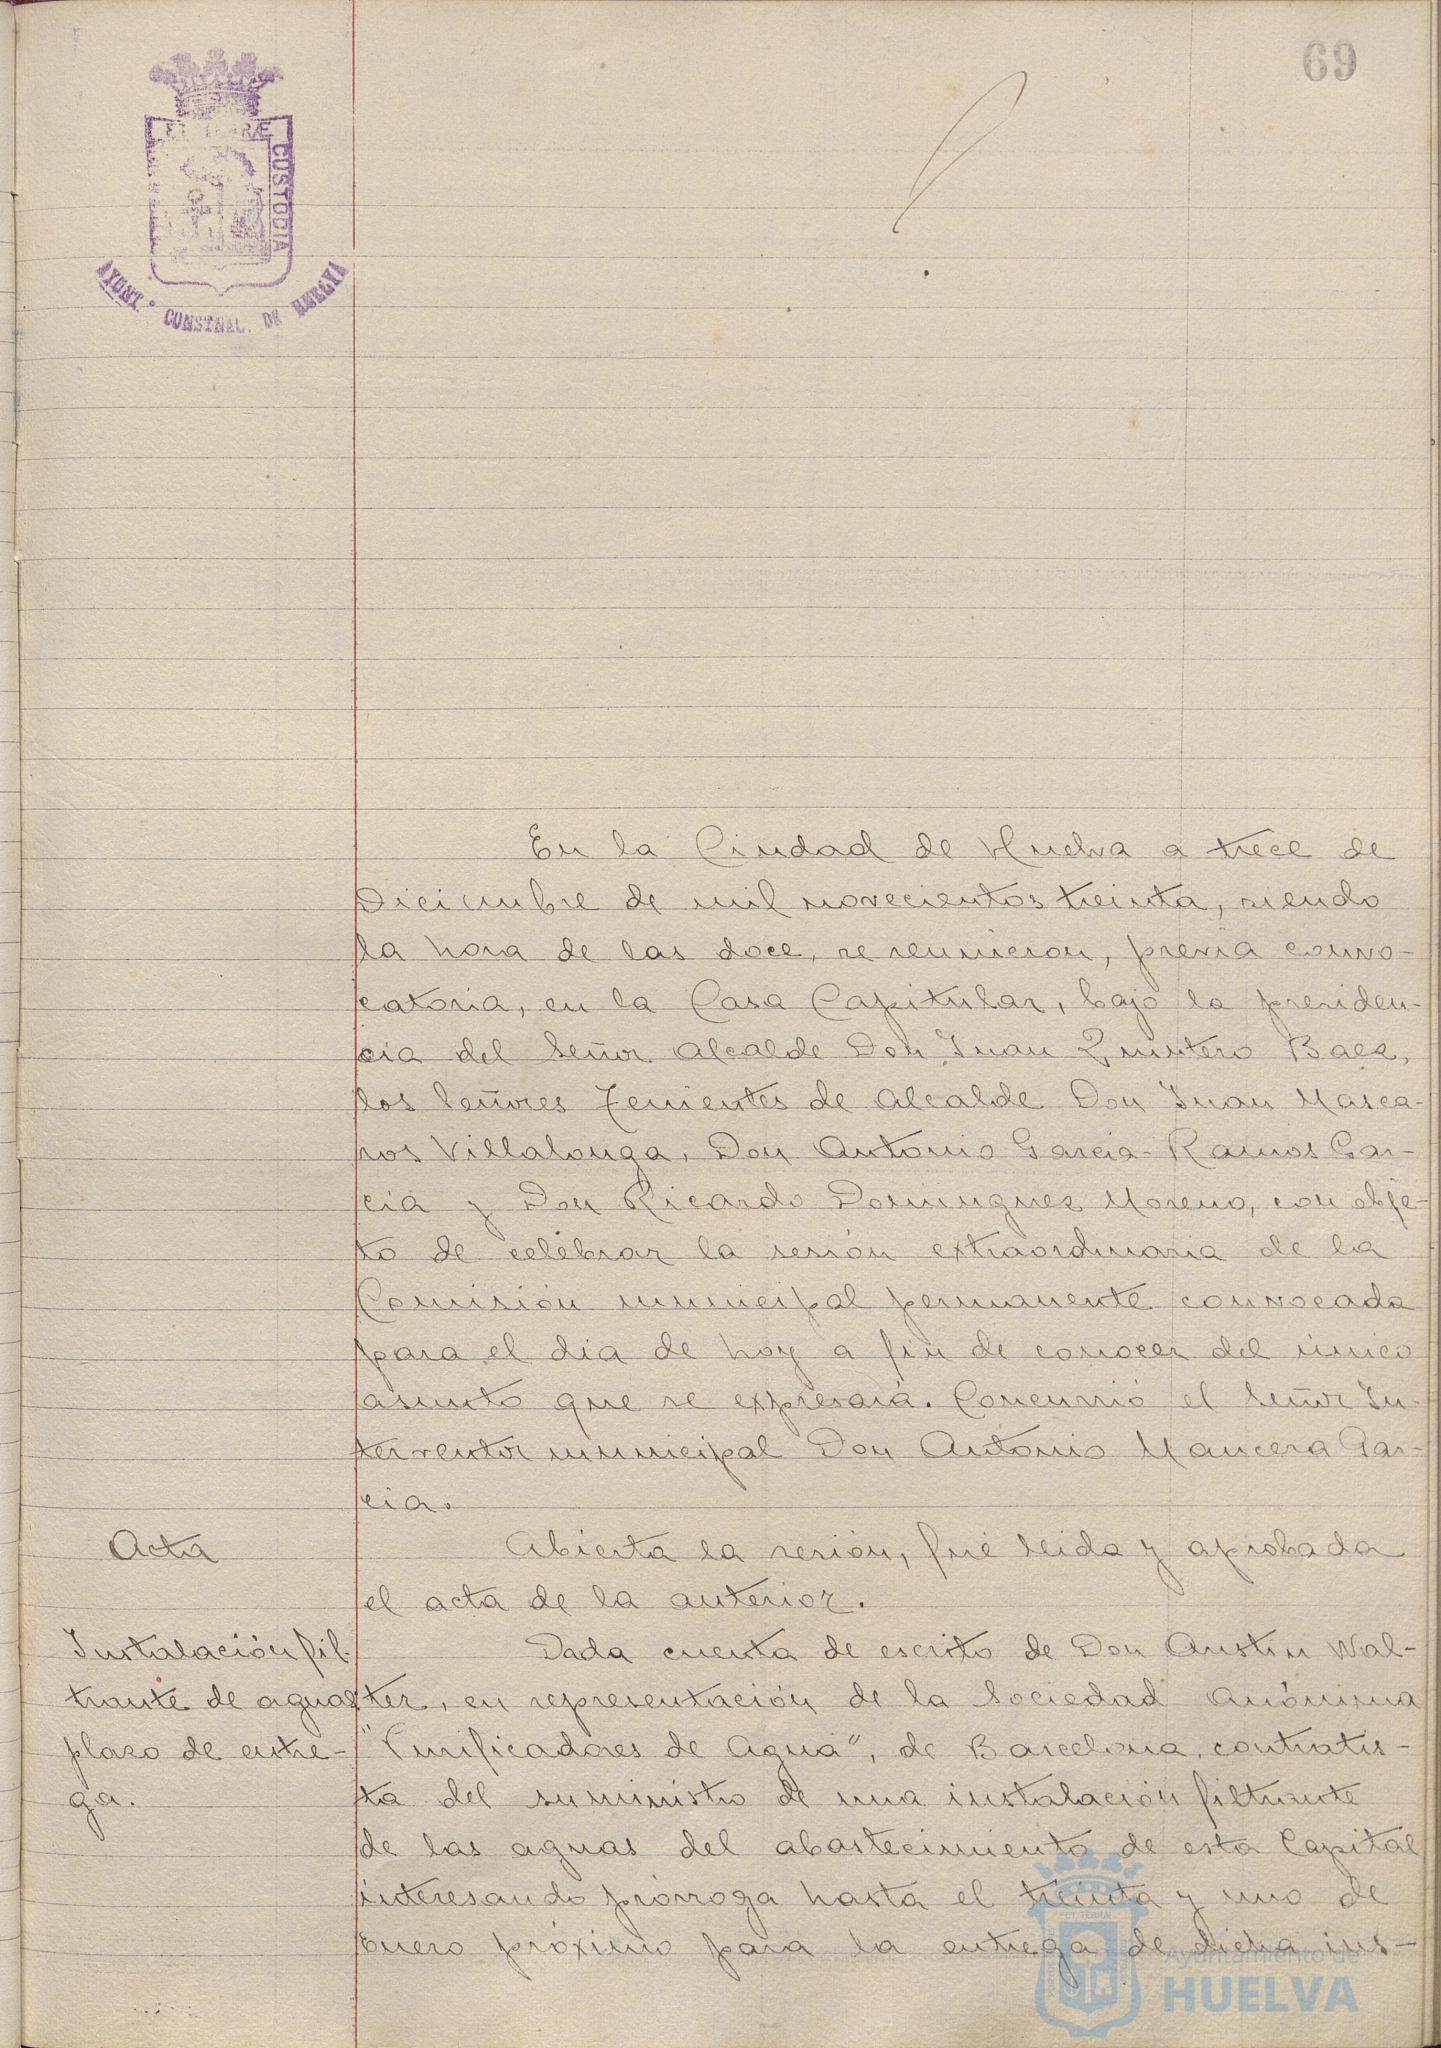 69
ET TERRÆ
CUSTODIA
AYUNT.º CONSTNAL. DE HUELVA
En la Ciudad de Huelva a trece de
Diciembre de mil novecientos treinta, siendo
la hora de las doce, se reunieron, previa convo-
catoria, en la Casa Capitular, bajo la presiden-
cia del Señor Alcalde Don Juan Quintero Baez,
los Señores Tenientes de Alcalde Don Juan Masca-
ros Villalonga, Don Antonio Garcia-Ramos Gar-
cia y Don Ricardo Dominguez Moreno, con obje-
to de celebrar la sesión extraordinaria de la
Comisión municipal permanente convocada
para el dia de hoy a fin de conocer del único
asunto que se expresará. Concurrió el Señor In-
terventor municipal Don Antonio Mancera Gar-
cia.
Acta
Abierta la sesión, fué leida y aprobada
el acta de la anterior.
Instalación fil-
trante de aguas
plazo de entre-
ga.
Dada cuenta de escrito de Don Austin Wal-
ter, en representación de la Sociedad anónima
"Purificadores de Agua", de Barcelona, contratis-
ta del suministro de una instalación filtrante
de las aguas del abastecimiento de esta Capital
interesando prórroga hasta el treinta y uno de
Enero próximo para la entrega de dicha ins-
Ayuntamiento de
HUELVA